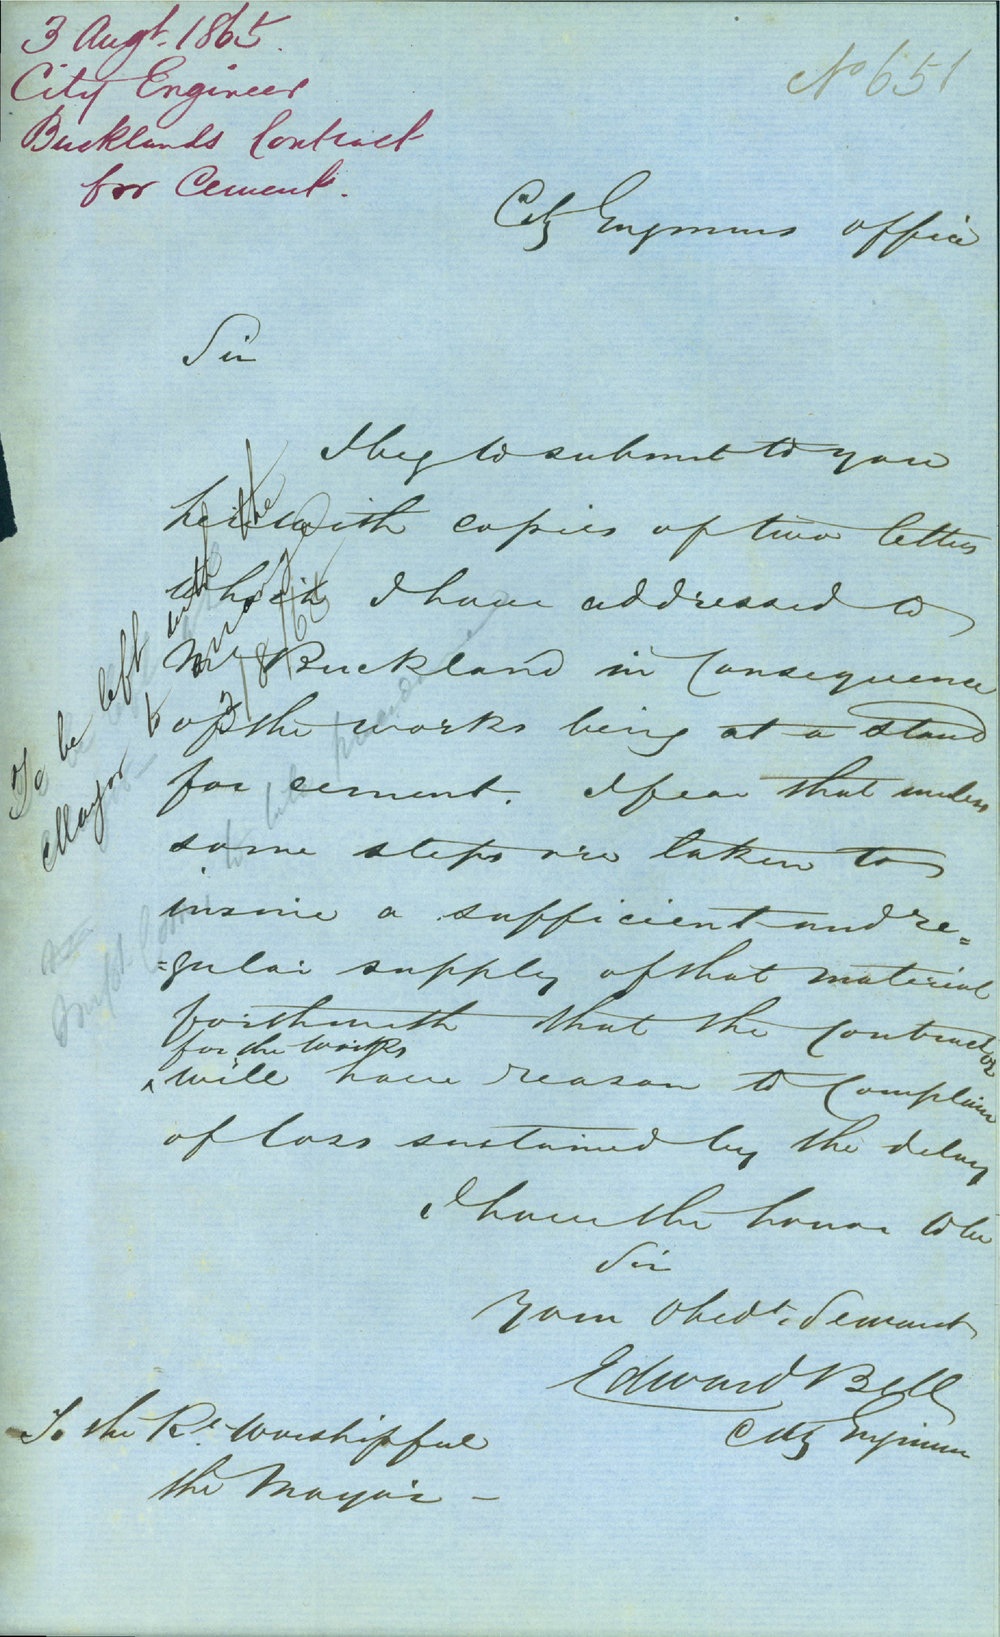 3 Augt. 1865.
City Engineer
Bucklands Contract
for Cement.
No 651
City Engineers office
Sir
I beg to submit to you
herewith copies of two letters
which I have addressed to
Mr Buckland in Consequence
of the works being at a stand
for cement. I fear that unless
some steps are taken to
insure a sufficient and re=
=gular supply of that material
forthwith that the Contractor
for the works
will have reason to Complain
of loss sustained by the delay
I have the honor to be
Sir
Your Obedt. Servant
Edward Bell
City Engineer
To the Rt. Worshipful
the Mayor —
To be left with the
Mayor to
3/8/65